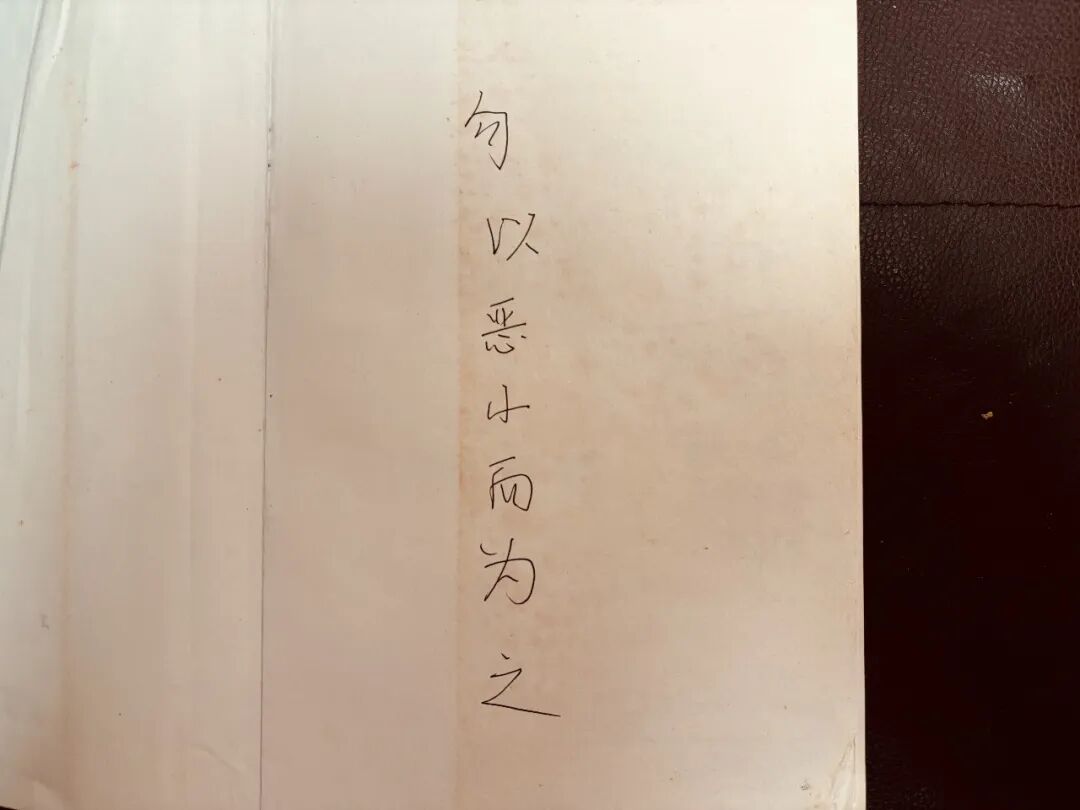 勿以恶小而为之